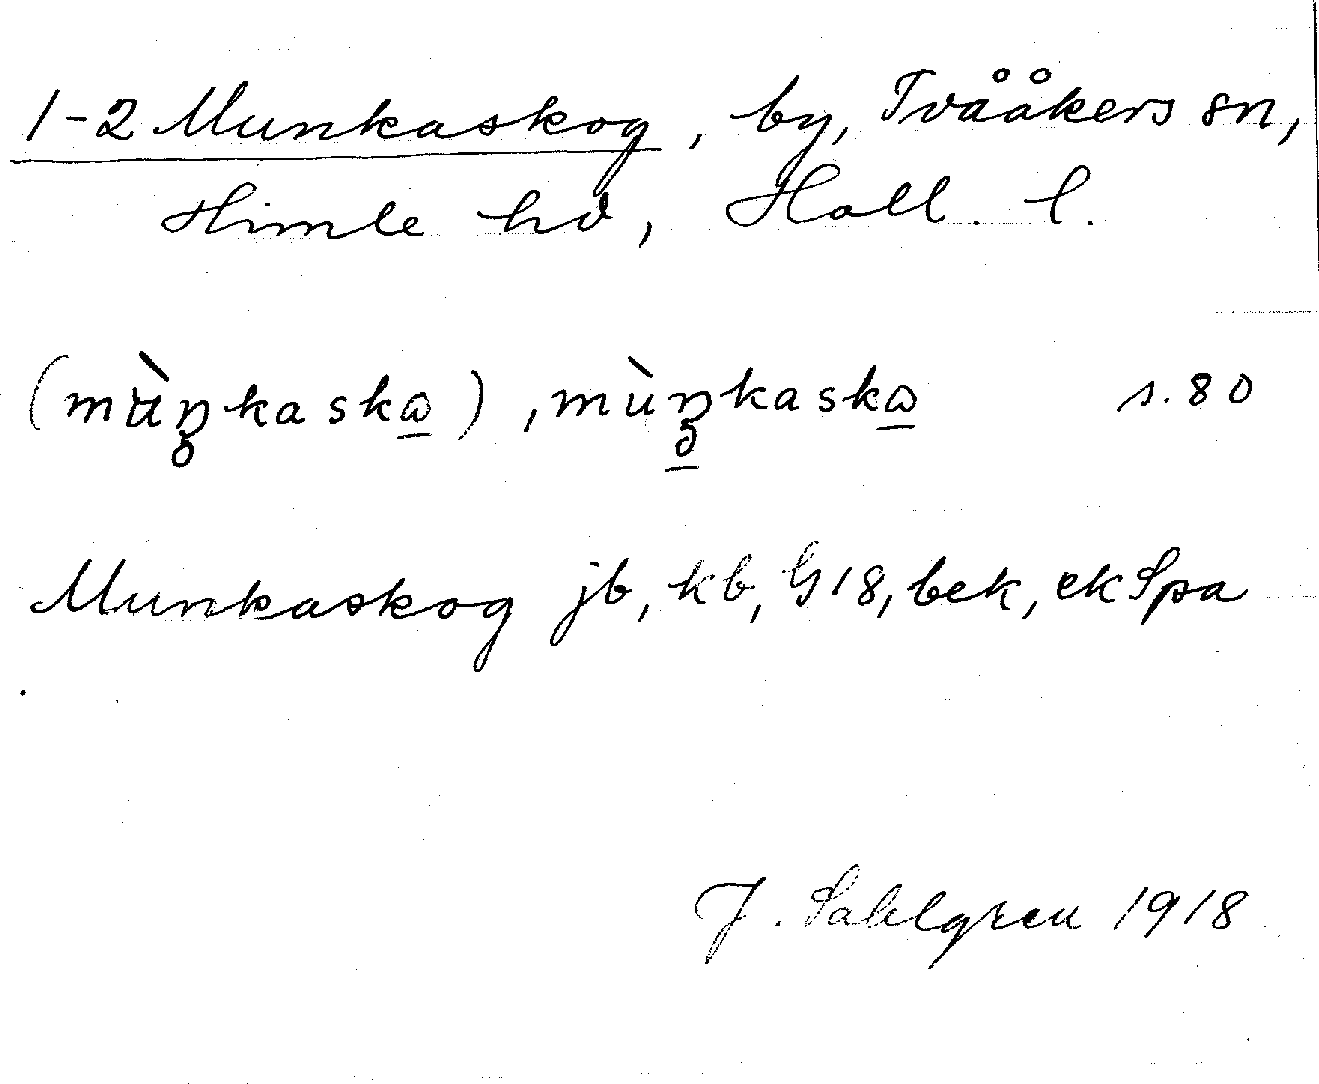 1-2 Munkaskog, by, Tvååkers sn,
Himle hd, Hall. l.
(mùŋkaskɷ), mùŋkaskɷ s. 80
Munkaskog jb, kb, G18, bek, ekSpa
J. Sahlgren 1918